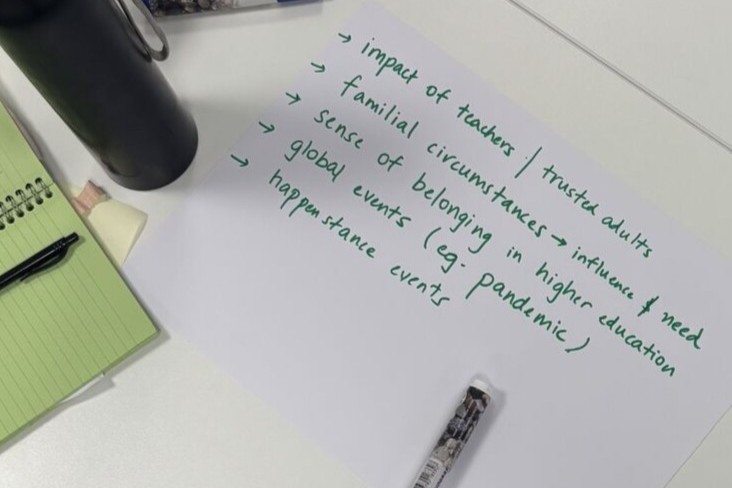 → impact of teachers / trusted adults
→ familial circumstances → influence & need
→ sense of belonging in higher education
→ global events (eg. pandemic)
→ happenstance events